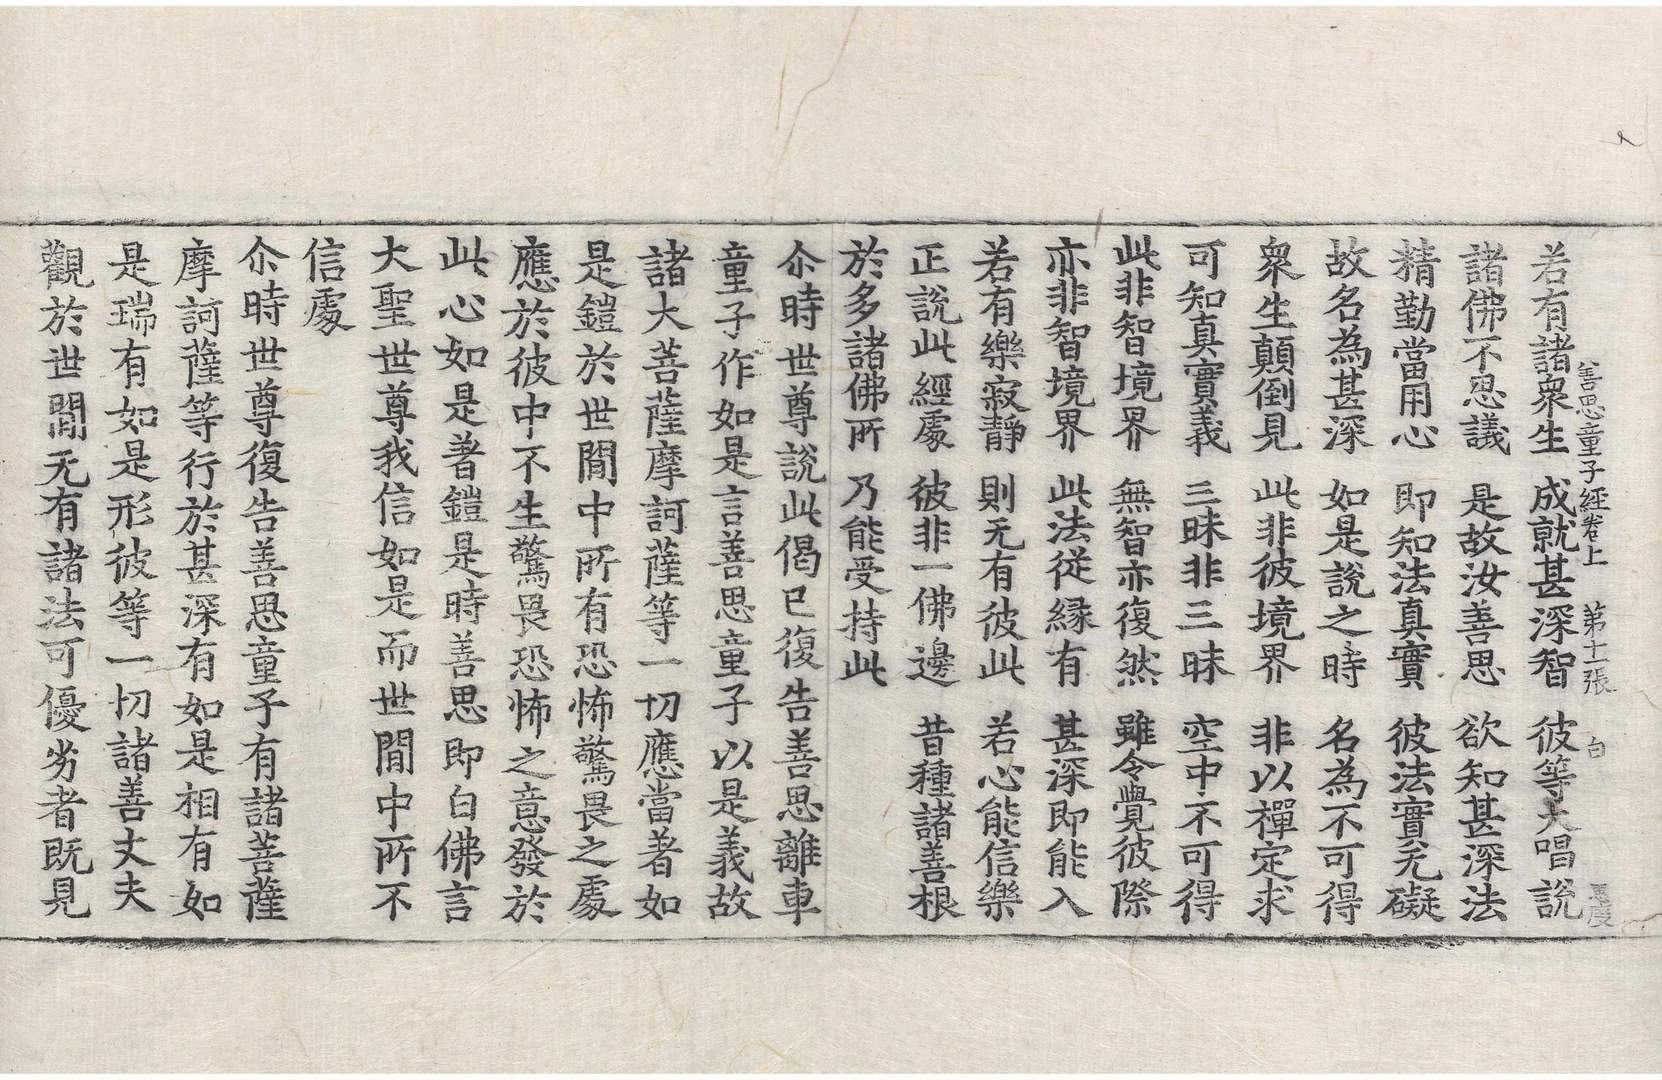 善思童子經卷上 第十二張 白
若有諸衆生 成就甚深智 彼等大唱說
諸佛不思議 是故汝善思 欲知甚深法
精勤當用心 即知法真實 彼法實无礙
故名為甚深 如是說之時 名為不可得
衆生顛倒見 此非彼境界 非以禪定求
可知真實義 三昧非三昧 空中不可得
此非智境界 無智亦復然 雖令覺彼際
亦非智境界 此法從緣有 甚深即能入
若有樂寂靜 則无有彼此 若心能信樂
正說此經處 彼非一佛邊 昔種諸善根
於多諸佛所 乃能受持此
尒時世尊說此偈已復告善思離車
童子作如是言善思童子以是義故
諸大菩薩摩訶薩等一切應當著如
是鎧於世間中所有恐怖驚畏之處
應於彼中不生驚畏恐怖之意發於
此心如是著鎧是時善思即白佛言
大聖世尊我信如是而世間中所不
信處
尒時世尊復告善思童子有諸菩薩
摩訶薩等行於甚深有如是相有如
是瑞有如是形彼等一切諸善丈夫
觀於世間无有諸法可優劣者既見